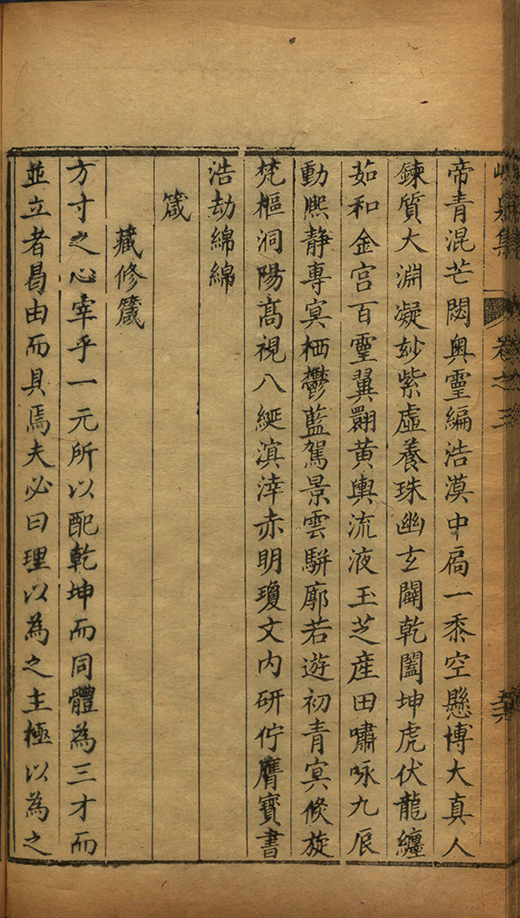 峴泉集 卷之三
帝青混芒閟奧靈編浩漠中扃一黍空懸博大真人
鍊質大淵凝玅紫虛養珠幽玄闢乾闔坤虎伏龍纏
茹和金宮百靈翼翾黃輿流液玉芝產田嘯咏九辰
動熈靜專冥栖鬱藍駕景雲駢廓若遊初青冥倐旋
梵樞洞陽髙視八綖滇涬赤明瓊文內研佇膺寶書
浩劫綿綿
箴
藏修箴
方寸之心宰乎一元所以配乾坤而同體為三才而
並立者曷由而具焉夫必曰理以為之主極以為之